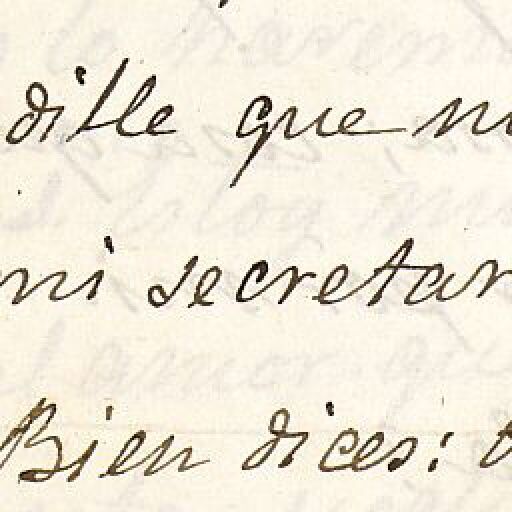 ditle que n
mi secretar
Bien dices: